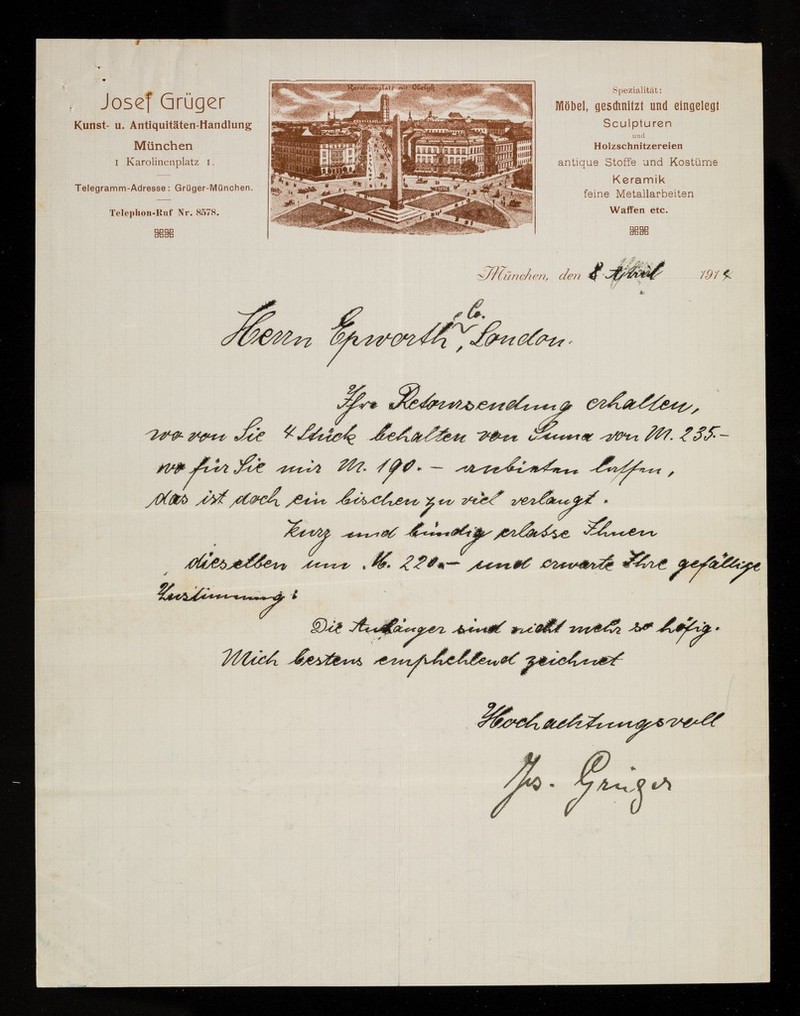 Josef Grüger
Kunst- u. Antiquitäten-Handlung
München
1 Karolinenplatz 1.
Telegramm-Adresse: Grüger-München.
Telephon-Ruf Nr. 8578.
Karolinenplatz mit Obelisk
Spezialität:
Möbel, geschnitzt und eingelegt
Sculpturen
und
Holzschnitzereien
antique Stoffe und Kostüme
Keramik
feine Metallarbeiten
Waffen etc.
München, den 8 April 191
Herrn Epworth & Co., London.
Ihre Retoursendung erhalten,
wo von Sie 4 Stück behalten von Suma von M. 235.–
wo für Sie mir M. 190.– anbieten lassen,
das ist doch ein bischen zu viel verlangt.
Kurz und bündig erlasse Ihnen
dieselben um M. 220.– und erwarte Ihre gefällige
Zustimmung:
Die Anhänger sind nicht mehr so
Mich bestens empfehlend zeichnet
Hochachtungsvoll
Jos. Grüger